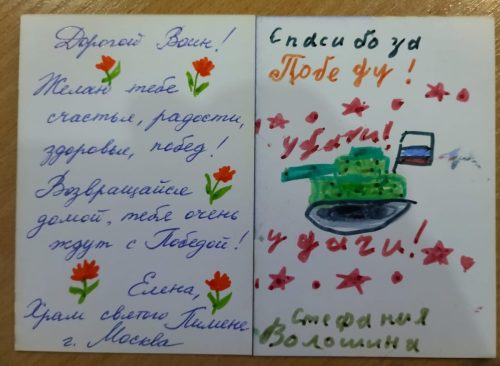 Дорогой Воин!
Желаю тебе
счастья, радости,
здоровья, побед!
Возвращайся
домой, тебя очень
ждут с Победой!
Елена,
Храм святого Пимена
г. Москва
Спасибо за
Победу!
удачи!
удачи!
Стефания
Волошина